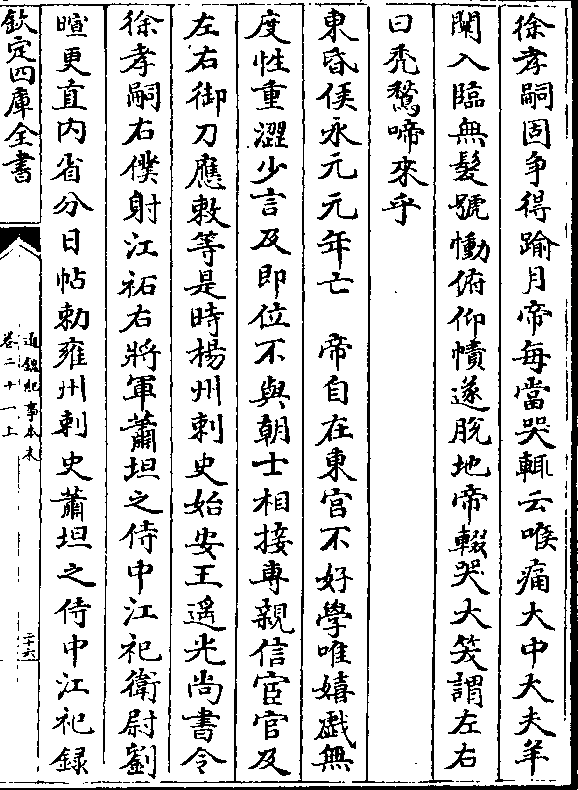 徐孝嗣固爭得踰月帝每當哭輒云喉痛大中大夫羊
闡入臨無髮號慟俯仰幘遂脫地帝輟哭大笑謂左右
曰禿鶖啼來乎
東昏侯永元元年亡　帝自在東宮不好學唯嬉戲無
度性重澀少言及即位不與朝士相接專親信宦官及
左右御刀應敕等是時楊州刺史始安王遥光尚書令
徐孝嗣右僕射江祏右將軍蕭坦之侍中江祀衛尉劉
暄更直内省分日帖勅雍州刺史蕭坦之侍中江祀録
欽定四庫全書
通鑑紀事本末
卷二十一上
二十六